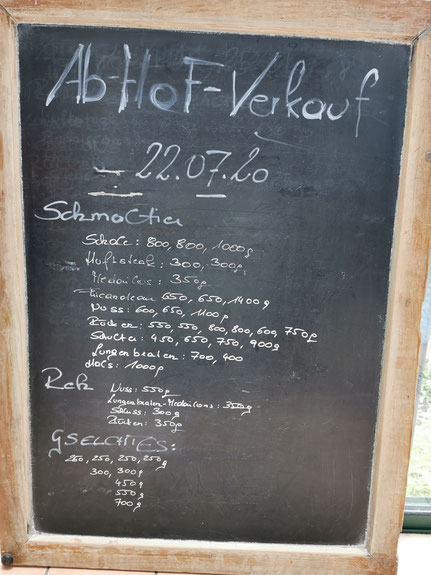 Ab-Hof-Verkauf
22.07.20
Schmaltier
Schale: 800, 800, 1000g
Hüftsteak: 300, 300g
Medaillons: 350g
650, 650, 1400g
Nuss: 600, 650, 1100g
Rücken: 550, 550, 800, 800, 600, 750g
Schulter: 450, 650, 750, 900g
Lungenbraten: 700, 400
Hals: 1000g
Reh
Nuss: 550g
Lungenbraten-Medaillons: 350g
Schluss: 300g
Rücken: 350g
GSELCHTES:
250, 250, 250, 250g
300, 300g
450g
550g
700g